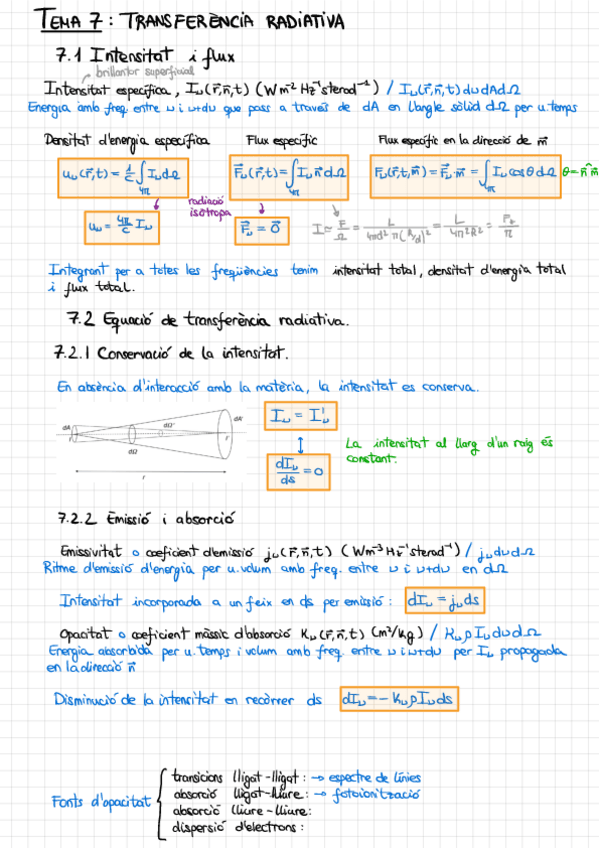 TEMA 7: TRANSFERÈNCIA RADIATIVA
7.1 Intensitat i flux
brillantor superficial
Intensitat específica, I_ν(r⃗,n⃗,t) (Wm⁻²Hz⁻¹sterad⁻¹) / I_ν(r⃗,n⃗,t)dνdAdΩ
Energia amb freq. entre ν i ν+dν que pass a través de dA en l'angle sòlid dΩ per u.temps
Densitat d'energia específica Flux específic Flux específic en la direcció de m⃗
u_ν(r⃗,t) = 1/c ∫_4π I_ν dΩ F⃗_ν(r⃗,t) = ∫_4π I_ν n⃗ dΩ F_ν(r⃗,t,m⃗) = F⃗_ν·m⃗ = ∫_4π I_ν cosθ dΩ θ = n̂m
radiació isotropa
u_ν = 4π/c I_ν F⃗_ν = 0⃗ I ≃ F/Ω = L/4πd² π(R/d)² = L/4π²R² = F_*/π
Integrant per a totes les freqüències tenim intensitat total, densitat d'energia total
i flux total.
7.2 Equació de transferència radiativa.
7.2.1 Conservació de la intensitat.
En absència d'interacció amb la matèria, la intensitat es conserva.
dA dΩ' dA' r' dΩ r
I_ν = I'_ν
dI_ν/ds = 0
La intensitat al llarg d'un raig és
constant.
7.2.2 Emissió i absorció
Emissivitat o coeficient d'emissió j_ν(r⃗,n⃗,t) (Wm⁻³Hz⁻¹sterad⁻¹) / j_ν dνdΩ
Ritme d'emissió d'energia per u.volum amb freq. entre ν i ν+dν en dΩ
Intensitat incorporada a un feix en ds per emissió: dI_ν = j_ν ds
Opacitat o coeficient màssic d'absorció κ_ν(r⃗,n⃗,t) (m²/kg) / κ_ν ρ I_ν dνdΩ
Energia absorbida per u.temps i volum amb freq. entre ν i ν+dν per I_ν propagada
en la direcció n⃗
Disminució de la intensitat en recórrer ds dI_ν = - κ_ν ρ I_ν ds
Fonts d'opacitat
transicions lligat-lligat: → espectre de línies
absorció lligat-lliure: → fotoionització
absorció lliure-lliure:
dispersió d'electrons: